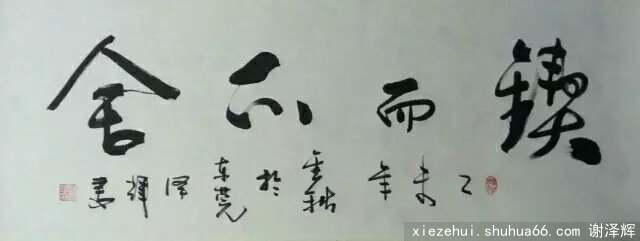 鍥而不舍
乙未年金秋於东莞泽辉書
xiezehui.shuhua66.com 谢泽辉